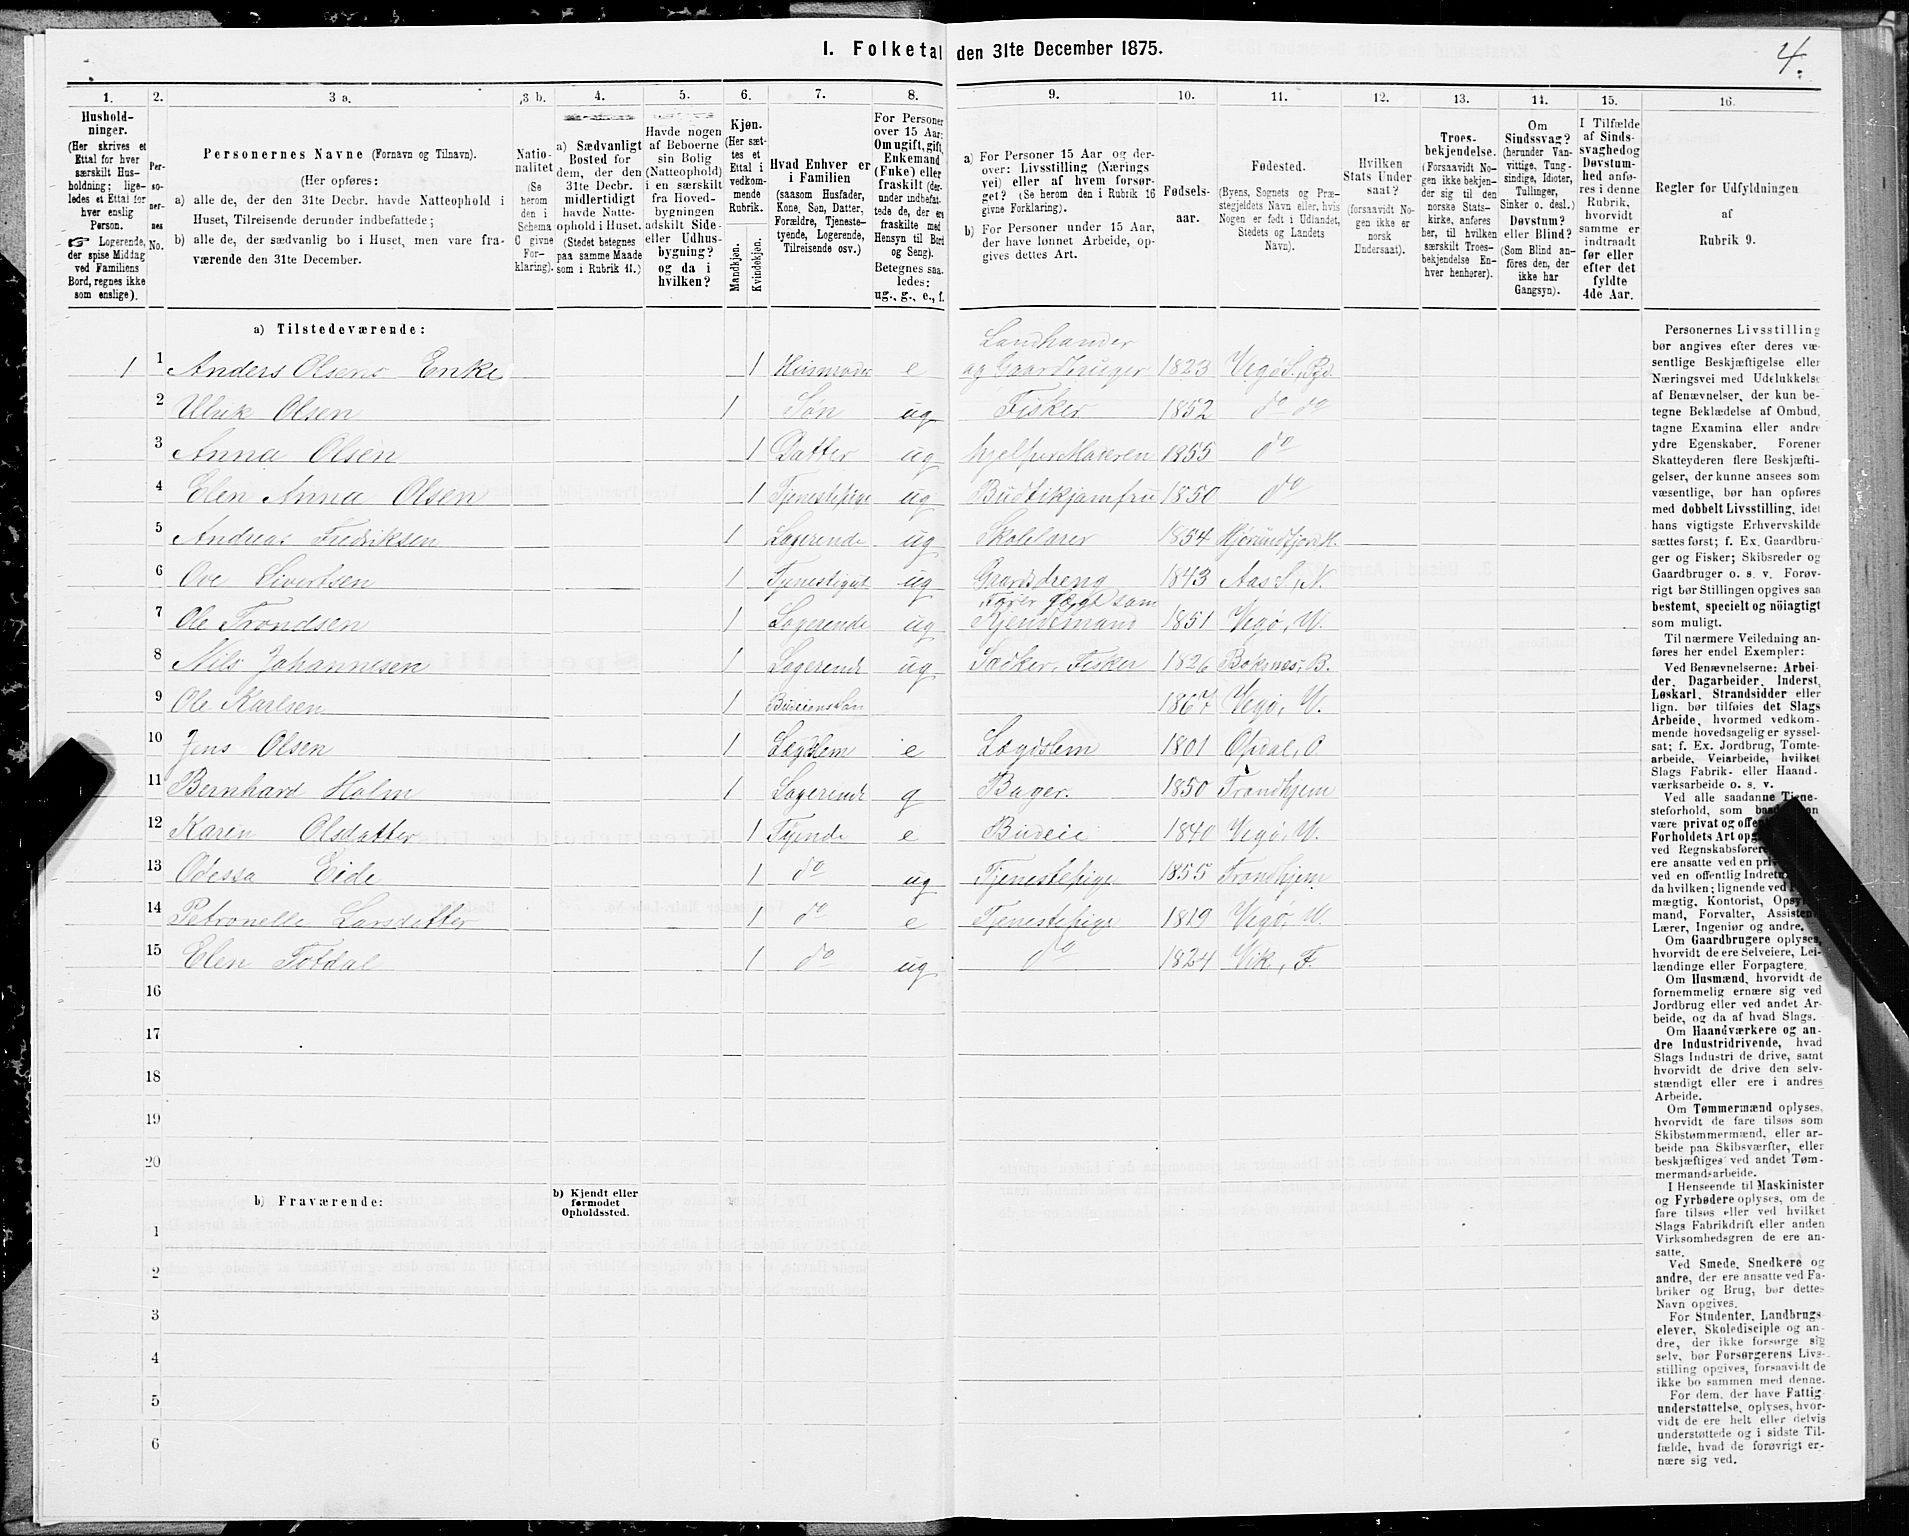 I. Folketal den 31te December 1875.
4.
1. 2. 3 a. 3 b. 4. 5. 6. 7. 8. 9. 10. 11. 12. 13. 14. 15. 16.
Hushold-
ninger.
(Her skrives et
Ettal for hver
særskilt Hus-
holdning; lige-
ledes et Ettal for
hver enslig
Person.
☞ Logerende,
der spise Middag
ved Familiens
Bord, regnes ikke
som enslige).
Per-
so-
ner-
nes
No.
Personernes Navne (Fornavn og Tilnavn).
(Her opføres:
a) alle de, der den 31te Decbr. havde Natteophold i
Huset, Tilreisende derunder indbefattede;
b) alle de, der sædvanlig bo i Huset, men vare fra-
værende den 31te December.
Natio-
nalitet
(Se
herom
den i
Schema
C givne
For-
klaring).
a) Sædvanligt
Bosted for
dem, der den
31te Decbr.
midlertidigt
havde Natte-
ophold i Huset.
(Stedet betegnes
paa samme Maade
som i Rubrik 11.)
Havde nogen
af Beboerne
sin Bolig
(Natteophold)
i en særskilt
fra Hoved-
bygningen
adskilt Side-
eller Udhus-
bygning?
og da i
hvilken?
Kjøn.
(Her sæt-
tes et
Ettal i
vedkom-
mende
Rubrik.
Mandkjøn.
Kvindekjøn.
Hvad Enhver er
i Familien
(saasom Husfader,
Kone, Søn, Datter,
Forældre, Tjeneste-
tyende, Logerende,
Tilreisende osv.)
For Personer
over 15 Aar:
Om ugift, gift,
Enkemand
(Enke) eller
fraskilt (der-
under indbefat-
tede de, der ere
fraskilte med
Hensyn til Bord
og Seng).
Betegnes saa-
ledes:
ug., g., e., f.
a) For Personer 15 Aar og der-
over: Livsstilling (Nærings
vei) eller af hvem forsør-
get? (Se herom den i Rubrik 16
givne Forklaring).
b) For Personer under 15 Aar,
der have lønnet Arbeide, op-
gives dettes Art.
Fødsels-
aar.
Fødested.
(Byens, Sognets og Præ-
stegjeldets Navn eller, hvis
Nogen er født i Udlandet,
Stedets og Landets
Navn).
Hvilken
Stats Under
saat?
(forsaavidt No-
gen ikke er
norsk
Undersaat).
Troes-
bekjendelse.
(Forsaavidt No-
gen ikke bekjen-
der sig til den
norske Stats-
kirke, anføres
her, til hvilken
særskilt Troes-
bekjendelse En-
hver henhører).
Om
Sindssvag?
(herunder Van-
vittige, Tung-
sindige, Idioter,
Tullinger,
Sinker o. desl.)
Døvstum?
eller Blind?
(Som Blind an-
føres den, der
ikke har
Gangsyn).
I Tilfælde
af Sinds-
svaghed og
Døvstum-
hed anfø-
res i denne
Rubrik,
hvorvidt
samme er
indtraadt
før eller
efter det
fyldte
4de Aar.
Regler for Udfyldningen
af
Rubrik 9.
a) Tilstedeværende:
1 1 Anders Olsens Enke 1 Husmoder e Landhander og Gaardbruger 1823 Vegø S., Pgd.
2 Ulrik Olsen 1 Søn ug Fisker 1852 do do
3 Anna Olsen 1 Datter ug hjelper Moderen 1855 do
4 Elen Anna Olsen 1 Tjenestepige ug Budtikjomfru 1850 do
5 Andreas Fredriksen 1 Logerende ug Skolelærer 1854 Hjørundfjord
6 Ove Sivertsen 1 ug Gaardsdreng 1843 Aas S., N.
7 Ole Trondsen 1 Logerende ug Kjendemand 1851 Vegø, V.
8 Nils Johannesen 1 Logerende ug Fisker 1826 Boknes, B.
9 Ole Karlsen 1 Budeiens Søn 1867 Vegø, V.
10 Jens Olsen 1 Lægdslem e Lægdslem 1801 Opdal, O
11 Bernhard Holm 1 Logerende g Bager. 1850 Trondhjem
12 Karin Olsdatter 1 Tyende e Budeie 1840 Vegø, V.
13 Odessa Eide 1 do ug Tjenestepige 1855 Trondhjem
14 Petronelle Larsdatter 1 do e Tjenestepige 1819 Vegø, V.
15 Elen Totdal 1 do ug do 1824 Vik, F.
16
17
18
19
20
b) Fraværende:
b) Kjendt eller
formodet
Opholdssted.
1
2
3
4
5
6
Personernes Livsstilling
bør angives efter deres væ-
sentlige Beskjæftigelse eller
Næringsvei med Udelukkelse
af Benævnelser, der kun be-
tegne Beklædelse af Ombud,
tagne Examina eller andre
ydre Egenskaber. Forener
Skatteyderen flere Beskjæfti-
gelser, der kunne ansees som
væsentlige, bør han opføres
med dobbelt Livsstilling, idet
hans vigtigste Erhvervskilde
sættes først; f. Ex. Gaardbru-
ger og Fisker; Skibsreder og
Gaardbruger o. s. v. Forøv-
rigt bør Stillingen opgives saa
bestemt, specielt og nöiagtigt
som muligt.
Til nærmere Veiledning an-
føres her endel Exempler:
Ved Benævnelserne: Arbei-
der, Dagarbeider, Inderst,
Løskarl, Strandsidder eller
lign. bør tilføies det Slags
Arbeide, hvormed vedkom-
mende hovedsagelig er syssel-
sat; f. Ex. Jordbrug, Tomte-
arbeide, Veiarbeide, hvilket
Slags Fabrik- eller Haand-
værksarbeide o. s. v.
Ved alle saadanne Tjene-
steforhold, som
være privat og
Forholdets Art
ved Regnskabsførere
ere ansatte ved en
ved en offentlig
da hvilken; lignende ved
mægtig, Kontorist,
mand, Forvalter,
Lærer, Ingeniør og andre.
Om Gaardbrugere oplyses,
hvorvidt de ere Selveiere, Lei-
lændinge eller Forpagtere.
Om Husmænd, hvorvidt de
fornemmelig ernære sig ved
Jordbrug eller ved andet Ar-
beide, og da af hvad Slags.
Om Haandværkere og an-
dre Industridrivende, hvad
Slags Industri de drive, samt
hvorvidt de drive den selv-
stændigt eller ere i andres
Arbeide.
Om Tømmermænd oplyses,
hvorvidt de fare tilsøs som
Skibstømmermænd, eller ar-
beide paa Skibsværfter, eller
beskjæftiges ved andet Tøm-
mermandsarbeide.
I Henseende til Maskinister
og Fyrbødere oplyses, om de
fare tilsøs eller ved hvilket
Slags Fabrikdrift eller anden
Virksomhedsgren de ere an-
satte.
Ved Smede, Snedkere og
andre, der ere ansatte ved Fa-
briker og Brug, bør dettes
Navn opgives.
For Studenter, Landbrugs-
elever, Skoledisciple og an-
dre, der ikke forsørge sig
selv, bør Forsørgerens Livs-
stilling opgives, forsaavidt de
ikke bo sammen med denne.
For dem, der have Fattig-
understøttelse, oplyses, hvor-
vidt de ere helt eller delvis
understøttede og i sidste Til-
fælde, hvad de forøvrigt er-
nære sig ved.